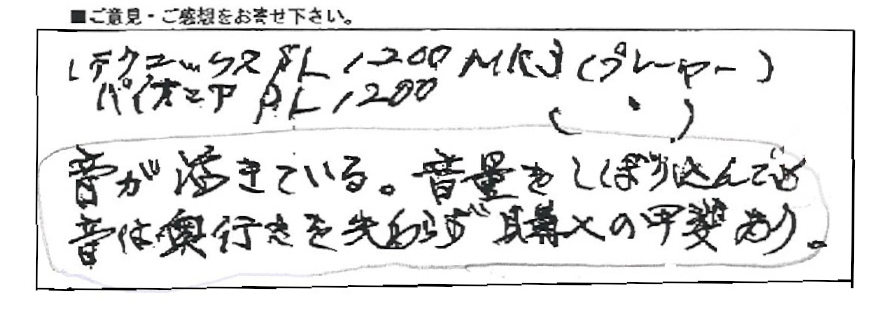 ■ご意見・ご感想をお寄せ下さい。
テクニックス SL 1200 MK3 (プレーヤー)
パイオニア PL 1200 ( 〃 )
音が活きている。音量をしぼり込んでも
音は奥行きを失わらず購入の甲斐あり。